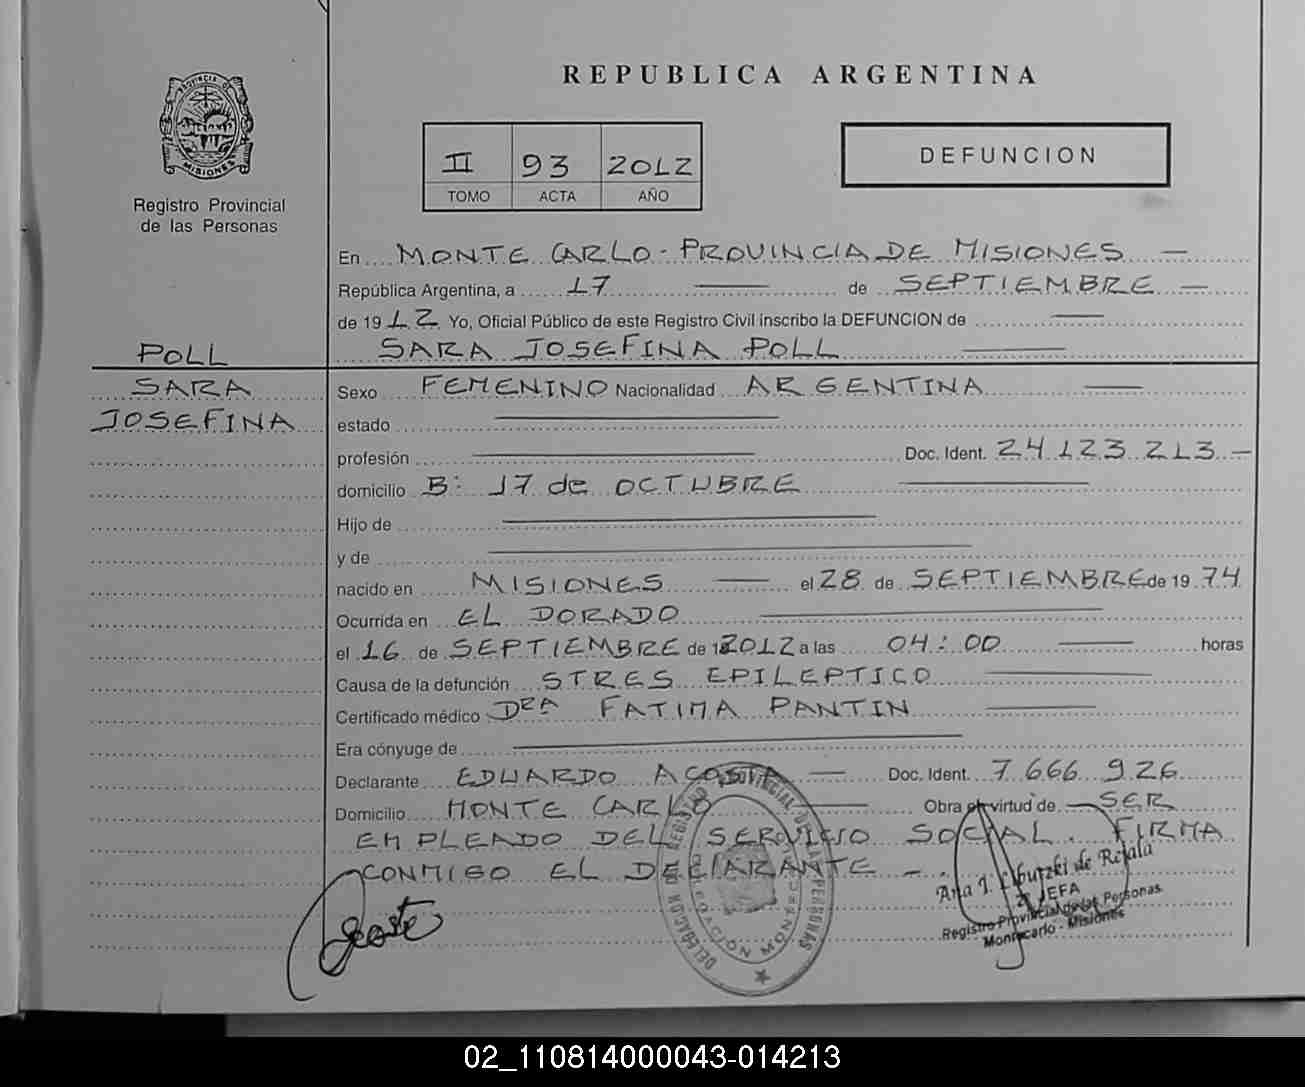 REPUBLICA ARGENTINA
PROVINCIA DE
MISIONES
Registro Provincial
de las Personas
II 93 2012
TOMO ACTA AÑO
DEFUNCION
En MONTE CARLO - PROVINCIA DE MISIONES —
República Argentina, a 17 — de SEPTIEMBRE —
de 19 12 Yo, Oficial Público de este Registro Civil inscribo la DEFUNCION de —
SARA JOSEFINA POLL —
POLL
SARA
JOSEFINA
Sexo FEMENINO Nacionalidad ARGENTINA —
estado —
profesión — Doc. Ident. 24 123 213 —
domicilio B: 17 de OCTUBRE —
Hijo de —
y de —
nacido en MISIONES — el 28 de SEPTIEMBRE de 19 74
Ocurrida en EL DORADO —
el 16 de SEPTIEMBRE de 2012 a las 04:00 — horas
Causa de la defunción STRES EPILEPTICO —
Certificado médico DRA FATIMA PANTIN —
Era cónyuge de —
Declarante EDUARDO ACOSTA — Doc. Ident. 7 666 926
Domicilio MONTE CARLO — Obra en virtud de — SER
EMPLEADO DEL SERVICIO SOCIAL. FIRMA
CONMIGO EL DECLARANTE —.
Acosta
DELEGACION DEL REGISTRO PROVINCIAL DE LAS PERSONAS
Ana I. de Rejala
JEFA
Registro Provincial de las Personas
Montecarlo - Misiones
02_110814000043-014213